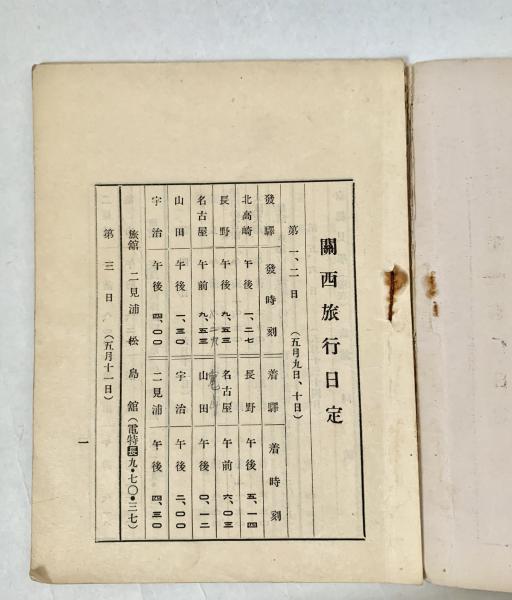 關西旅行日定
第一、二日（五月九日、十日）
發驛 發時刻 着驛 着時刻
北高崎 午後 一、二七 長野 午後 五、一四
長野 午後 九、五三 名古屋 午前 六、〇三
名古屋 午前 九、五三 山田 午後 〇、一二
山田 午後 一、三〇 宇治 午後 二、〇〇
宇治 午後 四、〇〇 二見浦 午後 四、三〇
旅館 二見浦 松島館（電特長九・七〇・三七）
第三日（五月十一日）
一